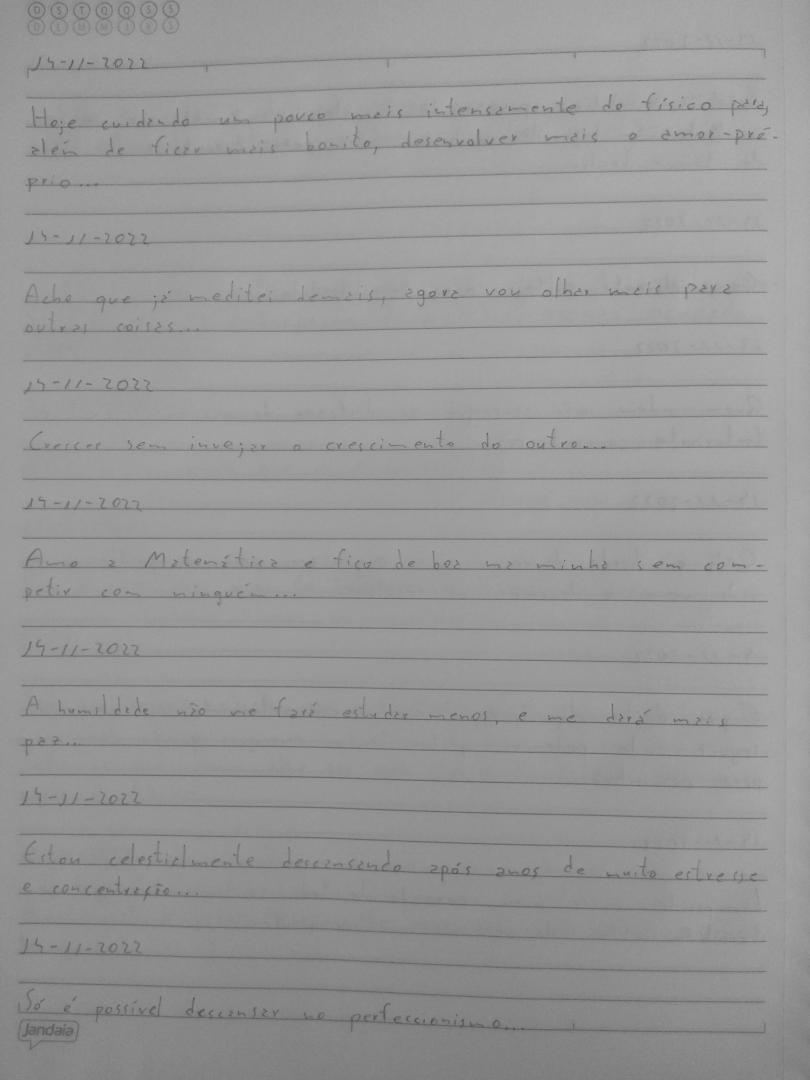 D S T Q Q S S
14-11-2022
Hoje cuidando um pouco mais intensamente do físico para,
além de ficar mais bonito, desenvolver mais o amor-pró-
prio...
14-11-2022
Acho que já meditei demais, agora vou olhar mais para
outras coisas...
14-11-2022
Crescer sem invejar o crescimento do outro...
14-11-2022
Amo a Matemática e fico de boa na minha sem com-
petir com ninguém...
14-11-2022
A humildade não me fará estudar menos, e me dará mais
paz...
14-11-2022
Estou celestialmente descansando após anos de muito estresse
e concentração...
14-11-2022
Só é possível descansar no perfeccionismo...
Jandaia